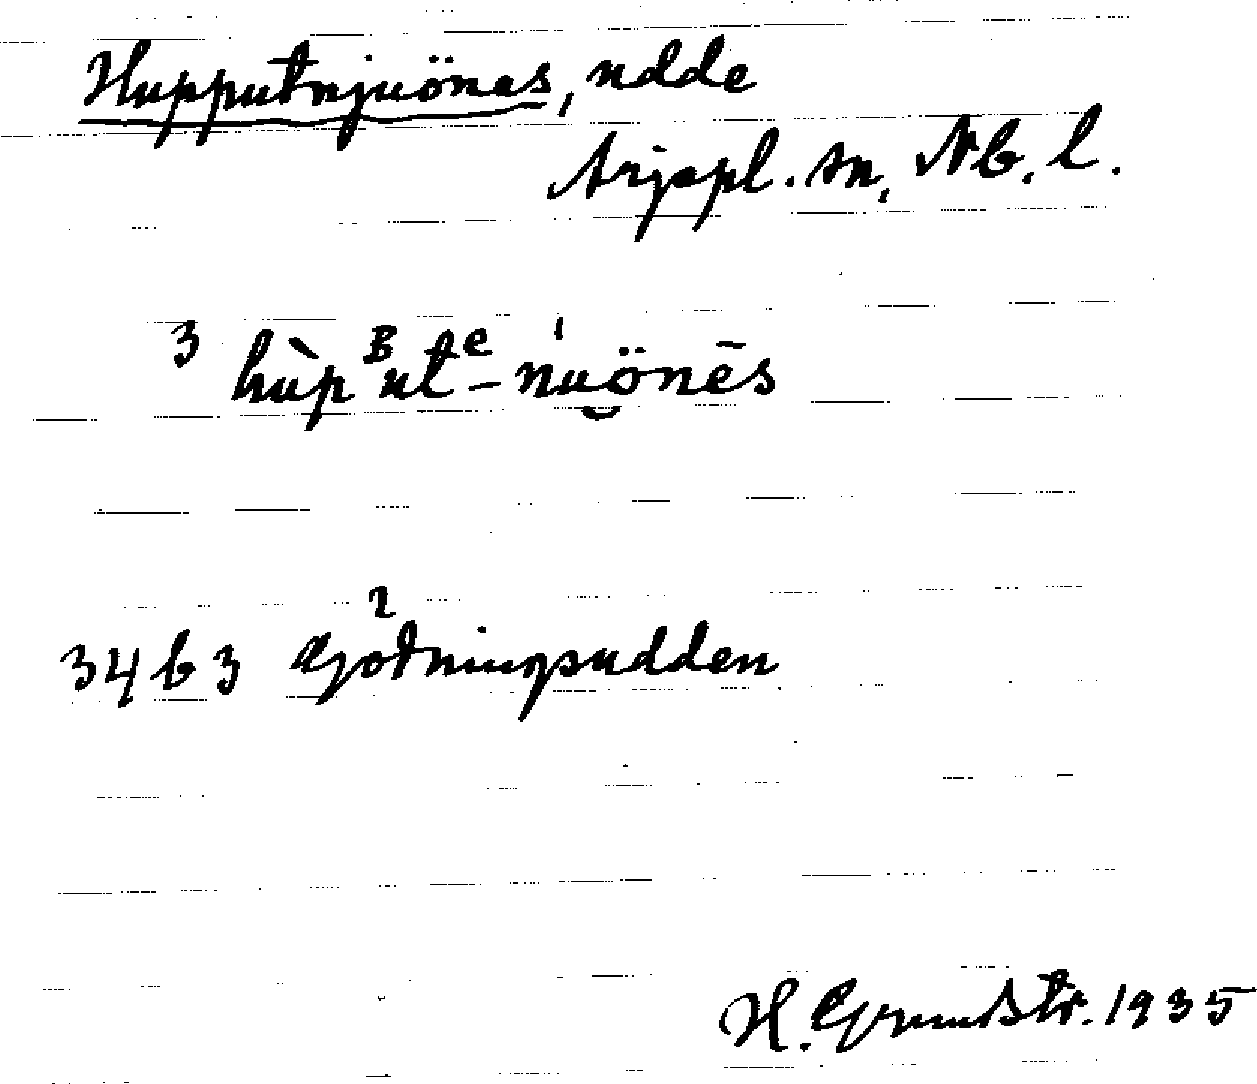 Hupputnjuönes, udde
Arjepl. sn, Nb. l.
3 hùpᴮutᵉ-nu̯önēs
34b3 Gödningsudden
H. Grundstr. 1935